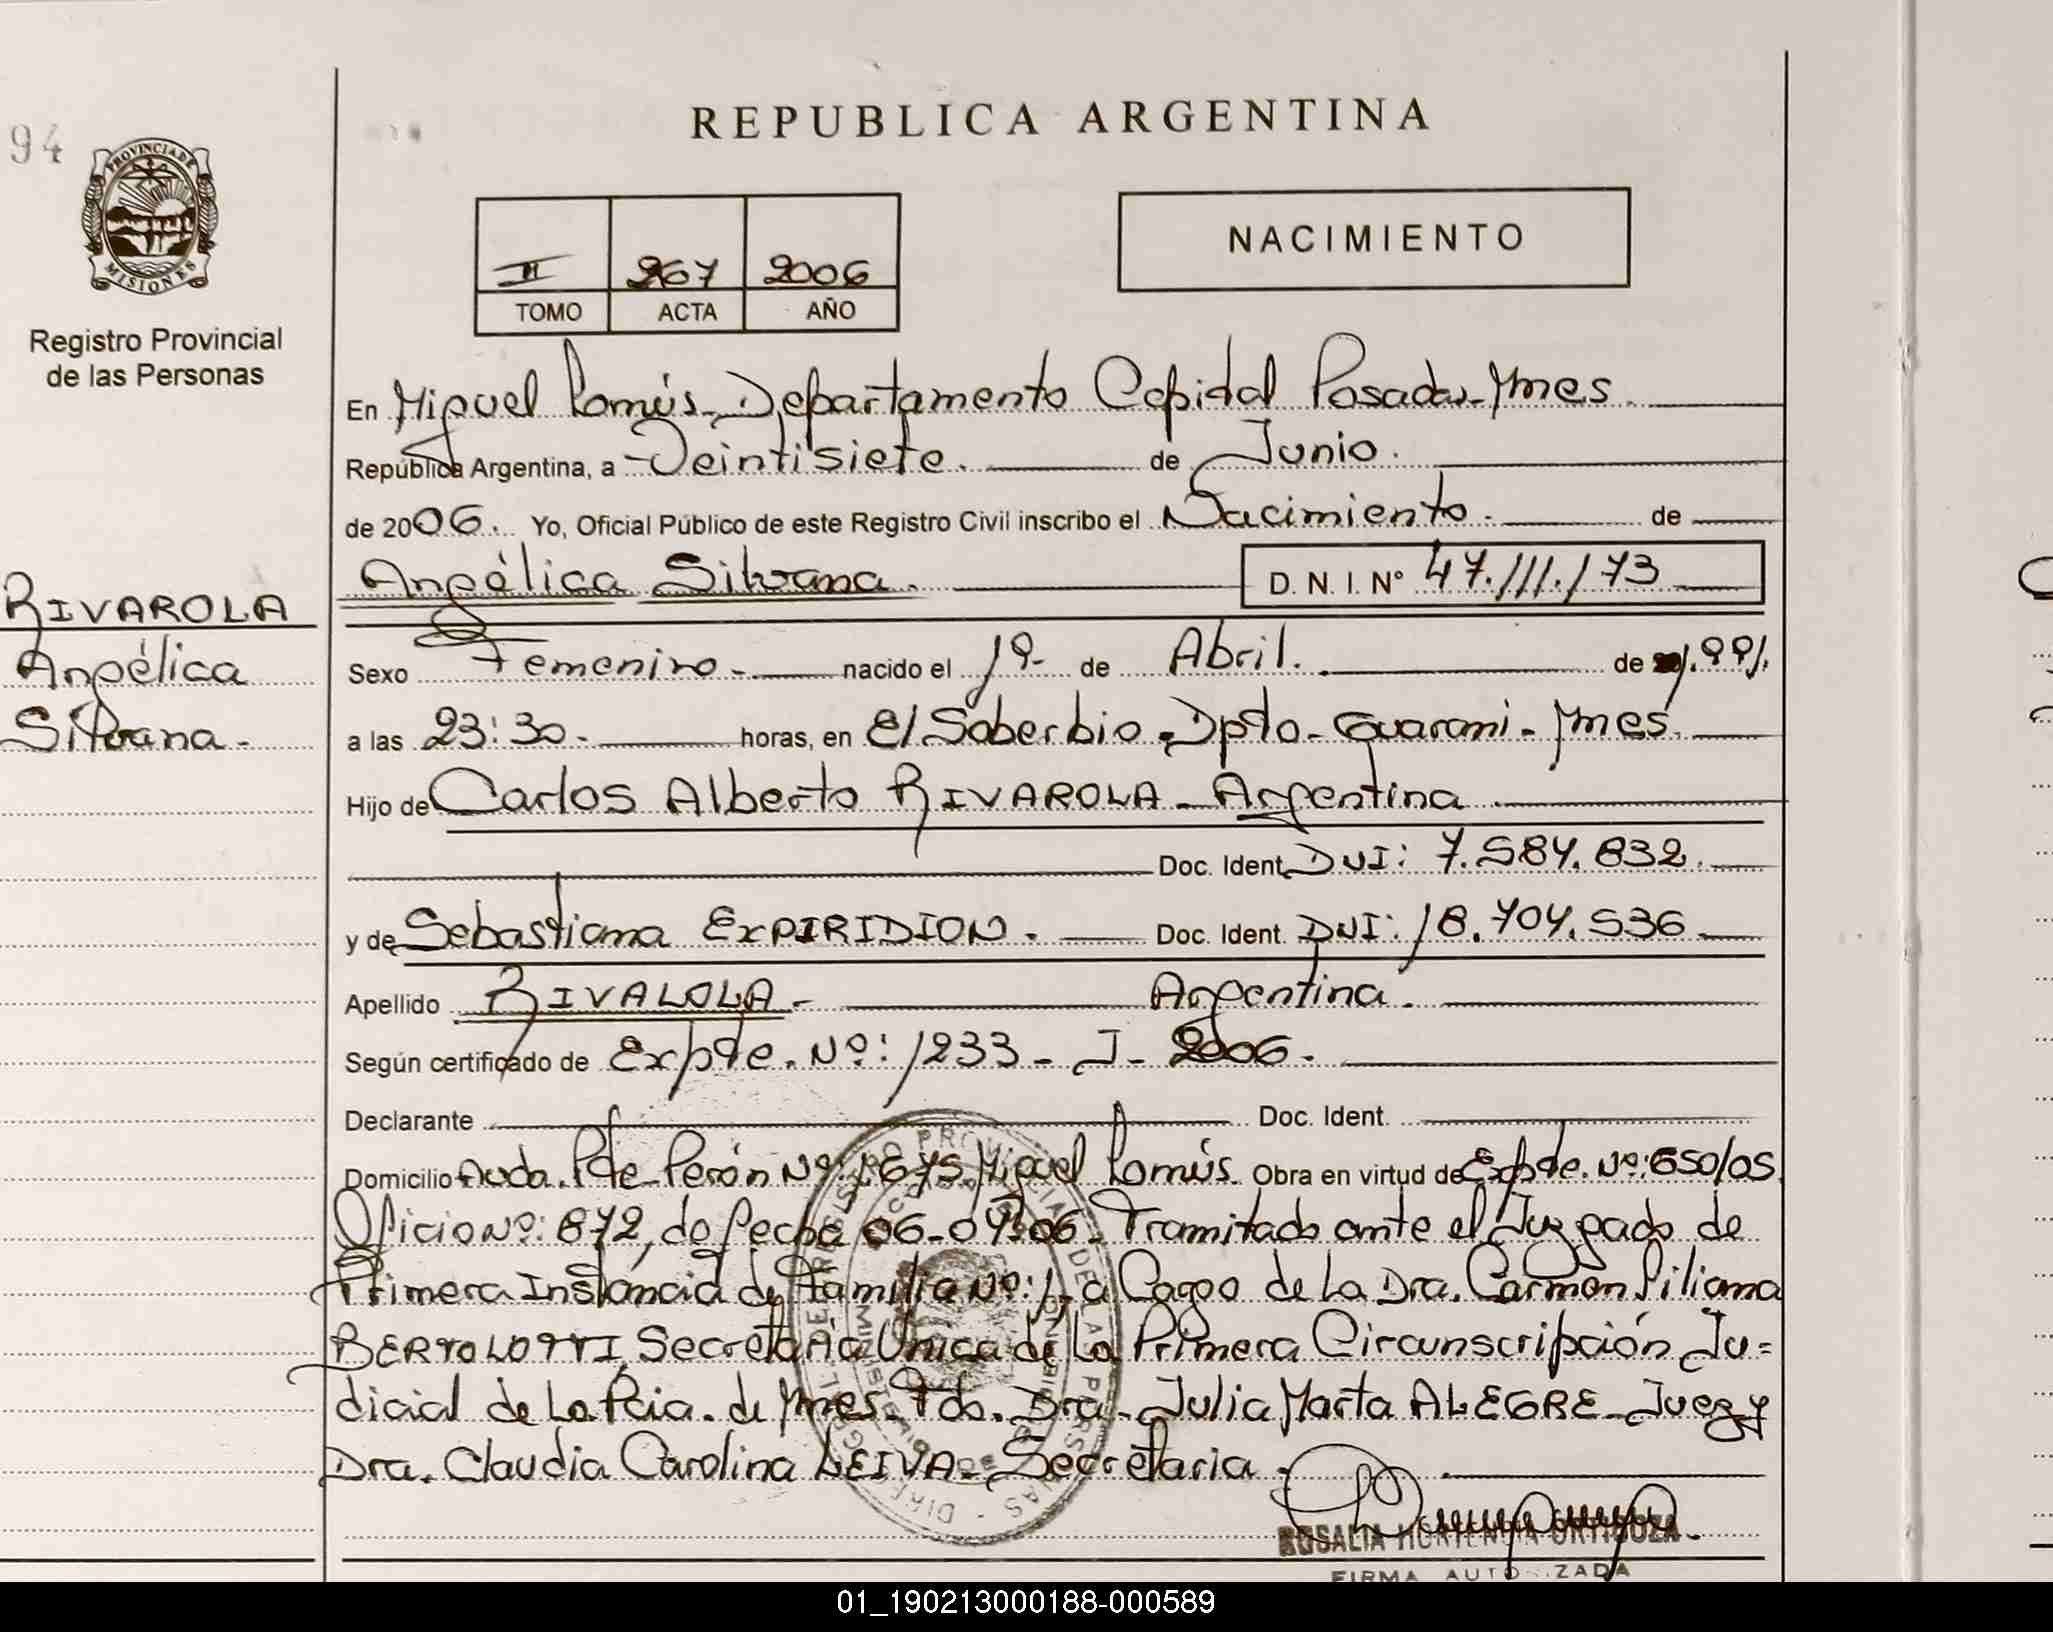 REPUBLICA ARGENTINA
94
PROVINCIA DE
MISIONES
Registro Provincial
de las Personas
II 267 2006
TOMO ACTA AÑO
NACIMIENTO
En Miguel Lanús - Departamento Capital Posadas - Mnes.
República Argentina, a - Veintisiete. de Junio.
de 2006. Yo, Oficial Público de este Registro Civil inscribo el Nacimiento. de
Angélica Silvana. D. N. I. Nº 47.111.173
RIVAROLA
Angélica
Silvana.
Sexo Femenino. nacido el 19- de Abril. de 1.991.
a las 23:30. horas, en El Soberbio - Dpto - Guarani - Mnes.
Hijo de Carlos Alberto RIVAROLA - Argentina
Doc. Ident. DNI: 7.584.832.
y de Sebastiana EXPIRIDION. Doc. Ident. DNI: 18.704.536
Apellido RIVALOLA - Argentina.
Según certificado de Expte. Nº: 1233 - J - 2006.
Declarante Doc. Ident.
Domicilio Avda. Pte. Perón Nº: 1675 Miguel Lanús. Obra en virtud de Expte. Nº: 650/05
Oficio Nº: 872, de fecha 06-04-06 - Tramitado ante el Juzgado de
Primera Instancia de Familia Nº: 1, a Cargo de La Dra. Carmen Liliana
BERTOLOTTI, Secretaría Única de La Primera Circunscripción Ju=
dicial de La Pcia. de Mnes. Fdo. Dra. Julia Marta ALEGRE - Juez y
Dra. Claudia Carolina LEIVA - Secretaria.
ROSALIA HORTENCIA ORTIGOZA
FIRMA AUTORIZADA
01_190213000188-000589